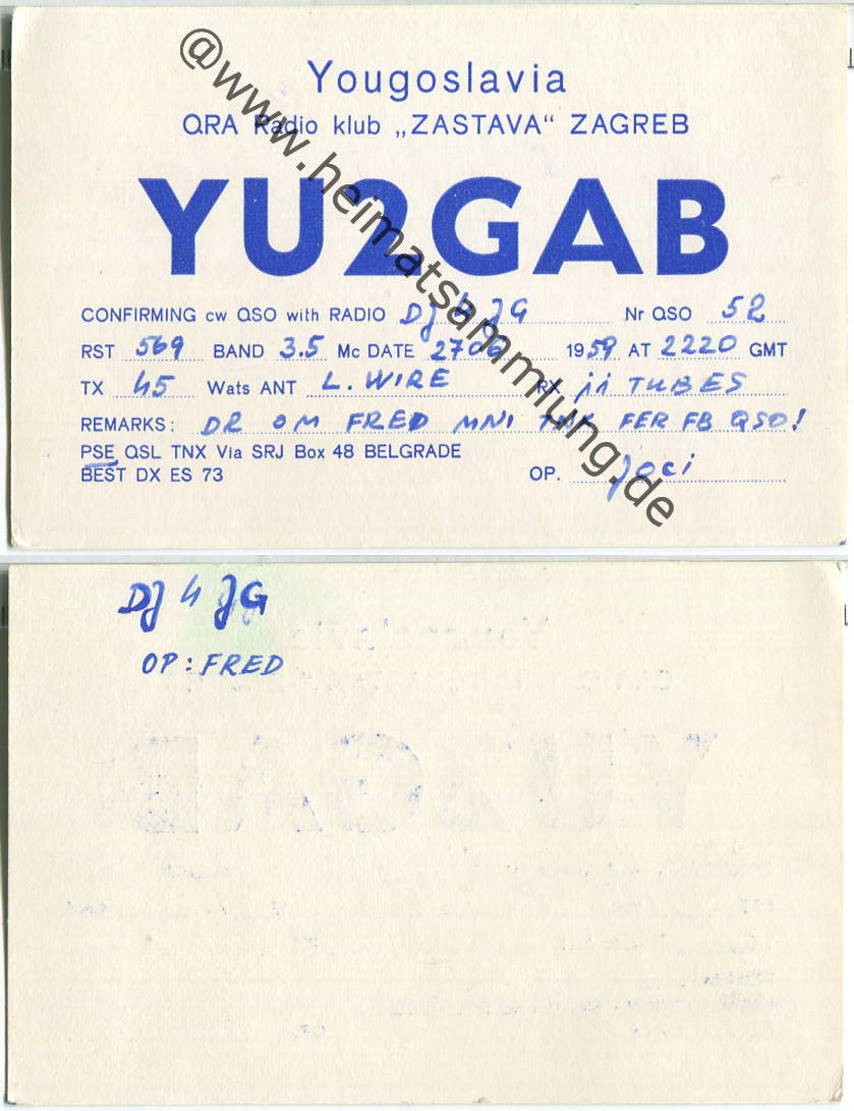 Yougoslavia
QRA Radio klub „ZASTAVA“ ZAGREB
YU2GAB
CONFIRMING cw QSO with RADIO DJ 4 JG Nr QSO 52
RST 569 BAND 3.5 Mc DATE 2706 1959 AT 2220 GMT
TX 45 Wats ANT L. WIRE RX 11 TUBES
REMARKS: DR OM FRED MNI TNX FER FB QSO!
PSE QSL TNX Via SRJ Box 48 BELGRADE
BEST DX ES 73 OP. Joci
@www.heimatsammlung.de
DJ 4 JG
OP: FRED